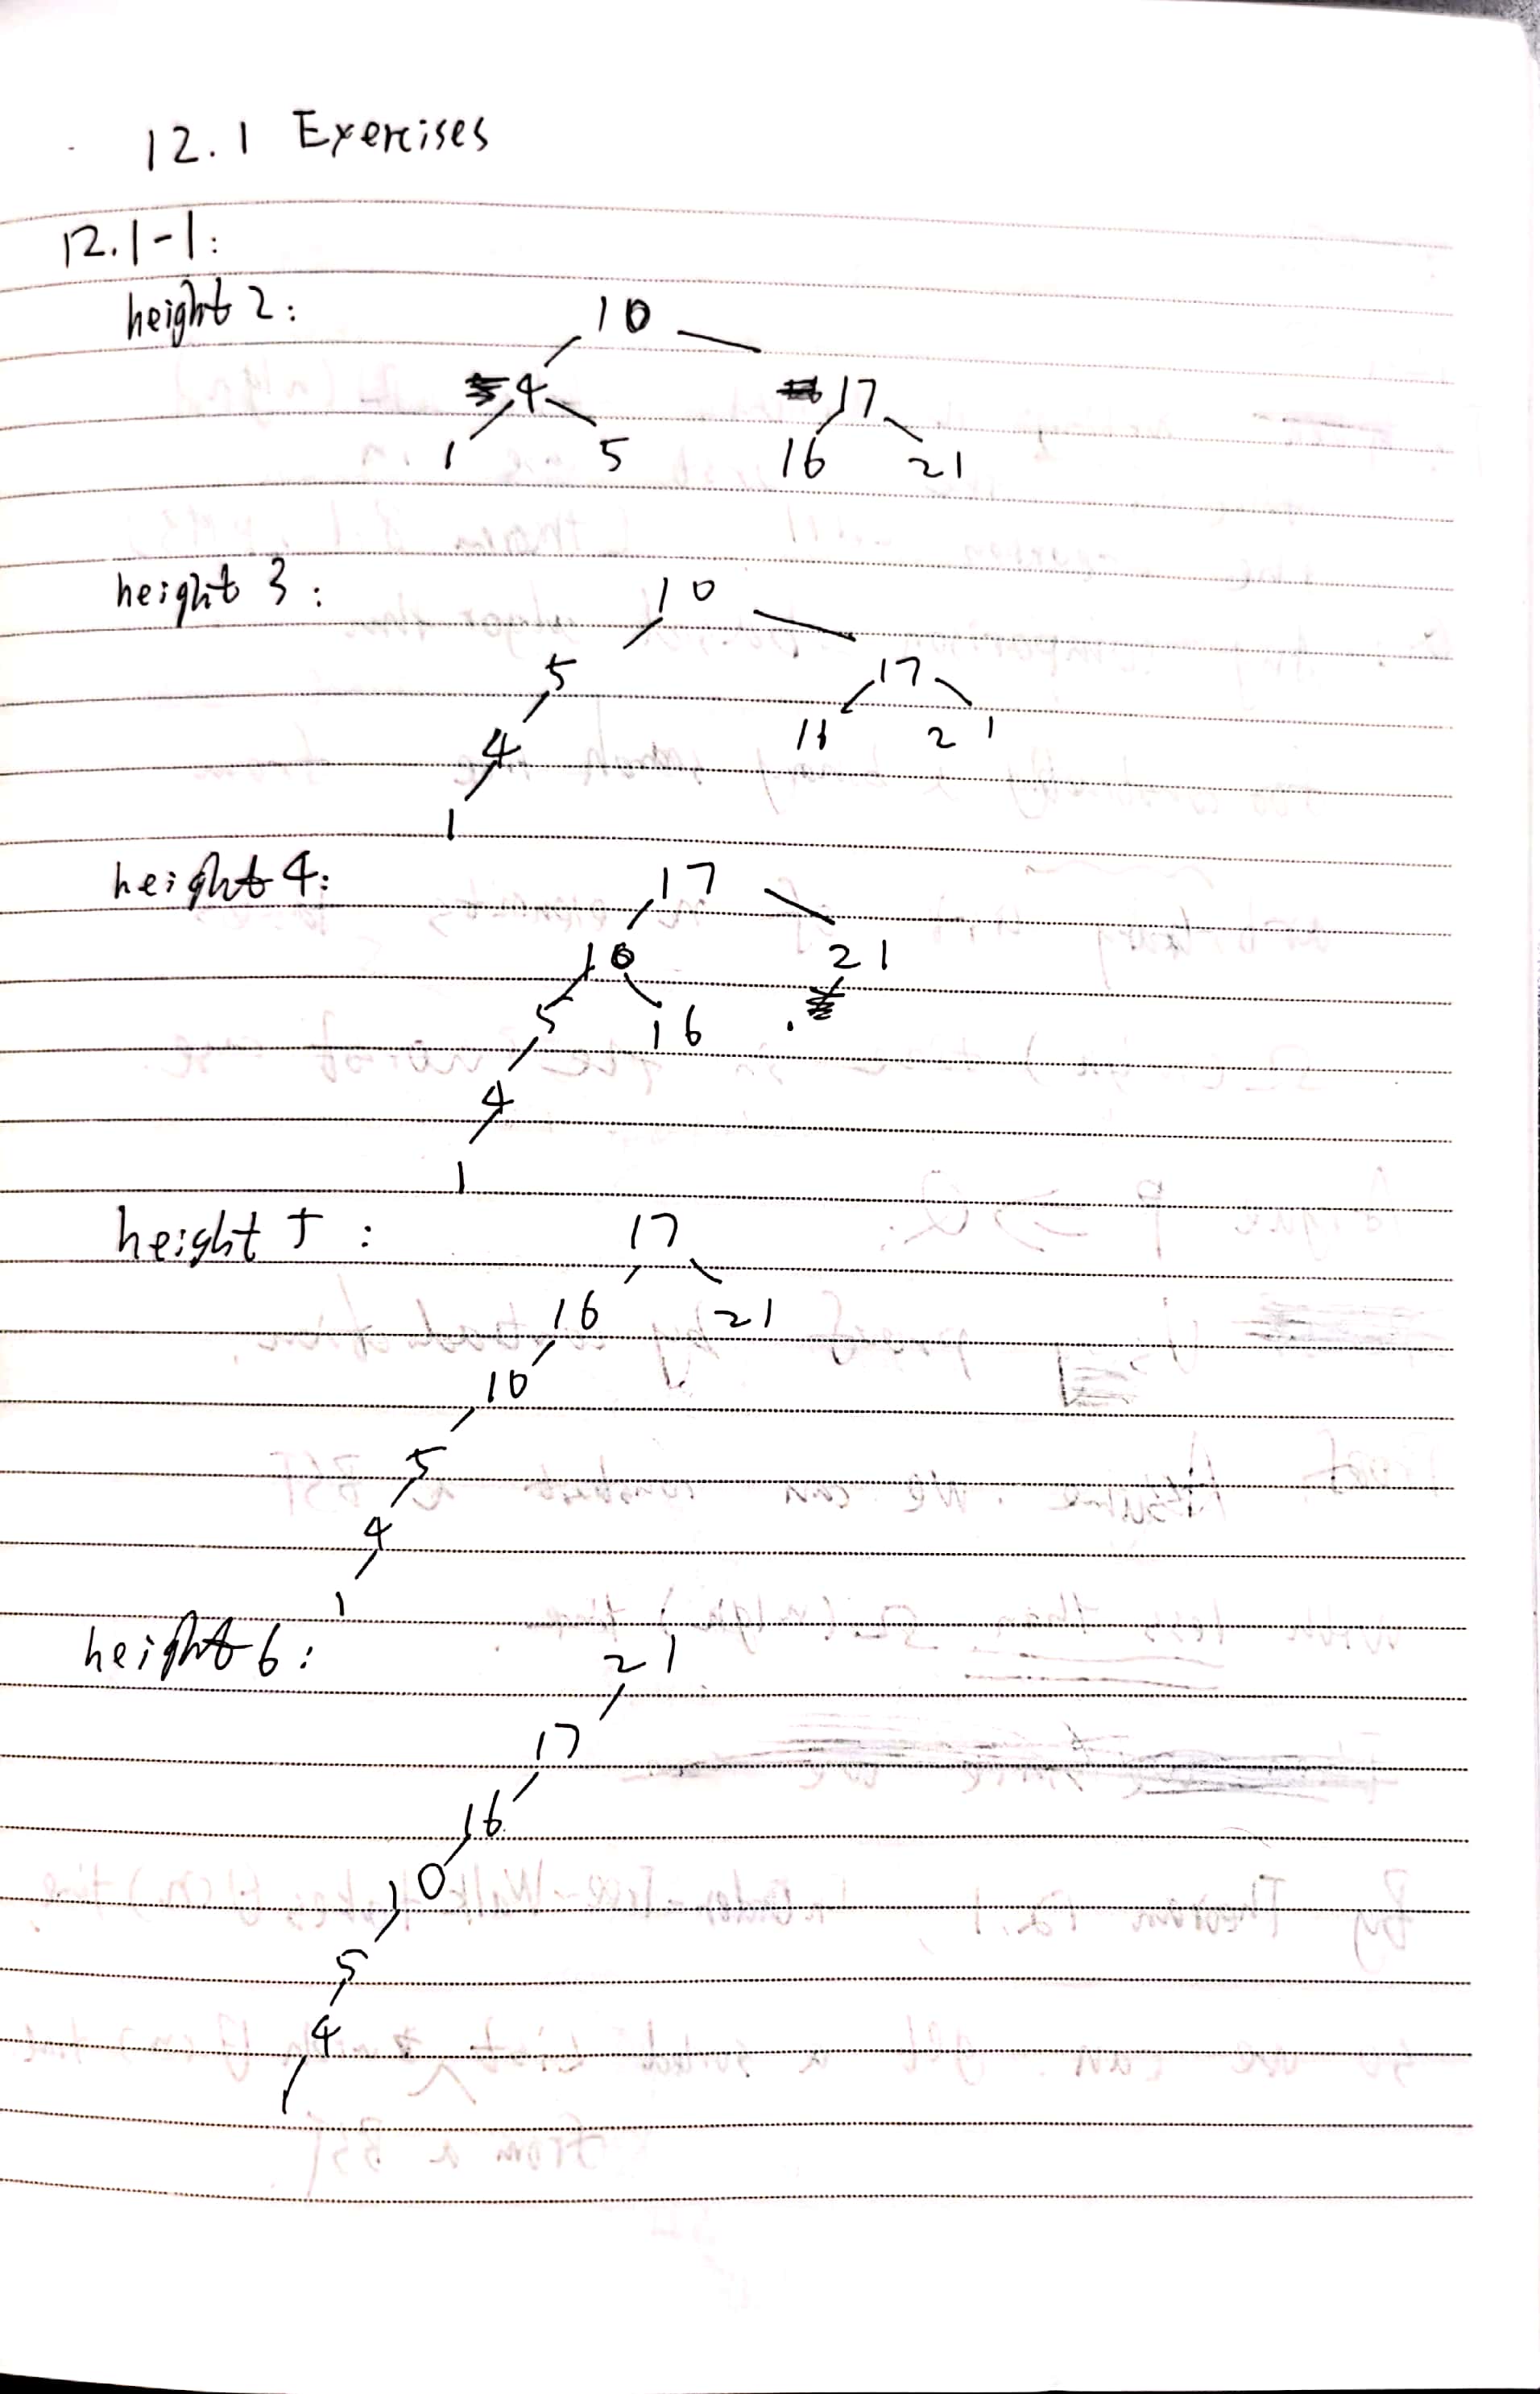 12.1 Exercises
12.1-1:
height 2: 10
4 17
1 5 16 21
height 3: 10
5 17
4 21
1
height 4: 17
10 21
5 16
4
1
height 5: 17
16 21
10
5
4
1
height 6: 21
17
16
10
5
4
1